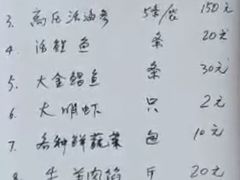 3. 高压注油参 5条/袋 150元
4. 活鲤鱼 条 20元
5. 大金鲳鱼 条 30元
6. 大明虾 只 2元
7. 各种鲜蔬菜 包 10元
8. 牛羊肉馅 斤 20元